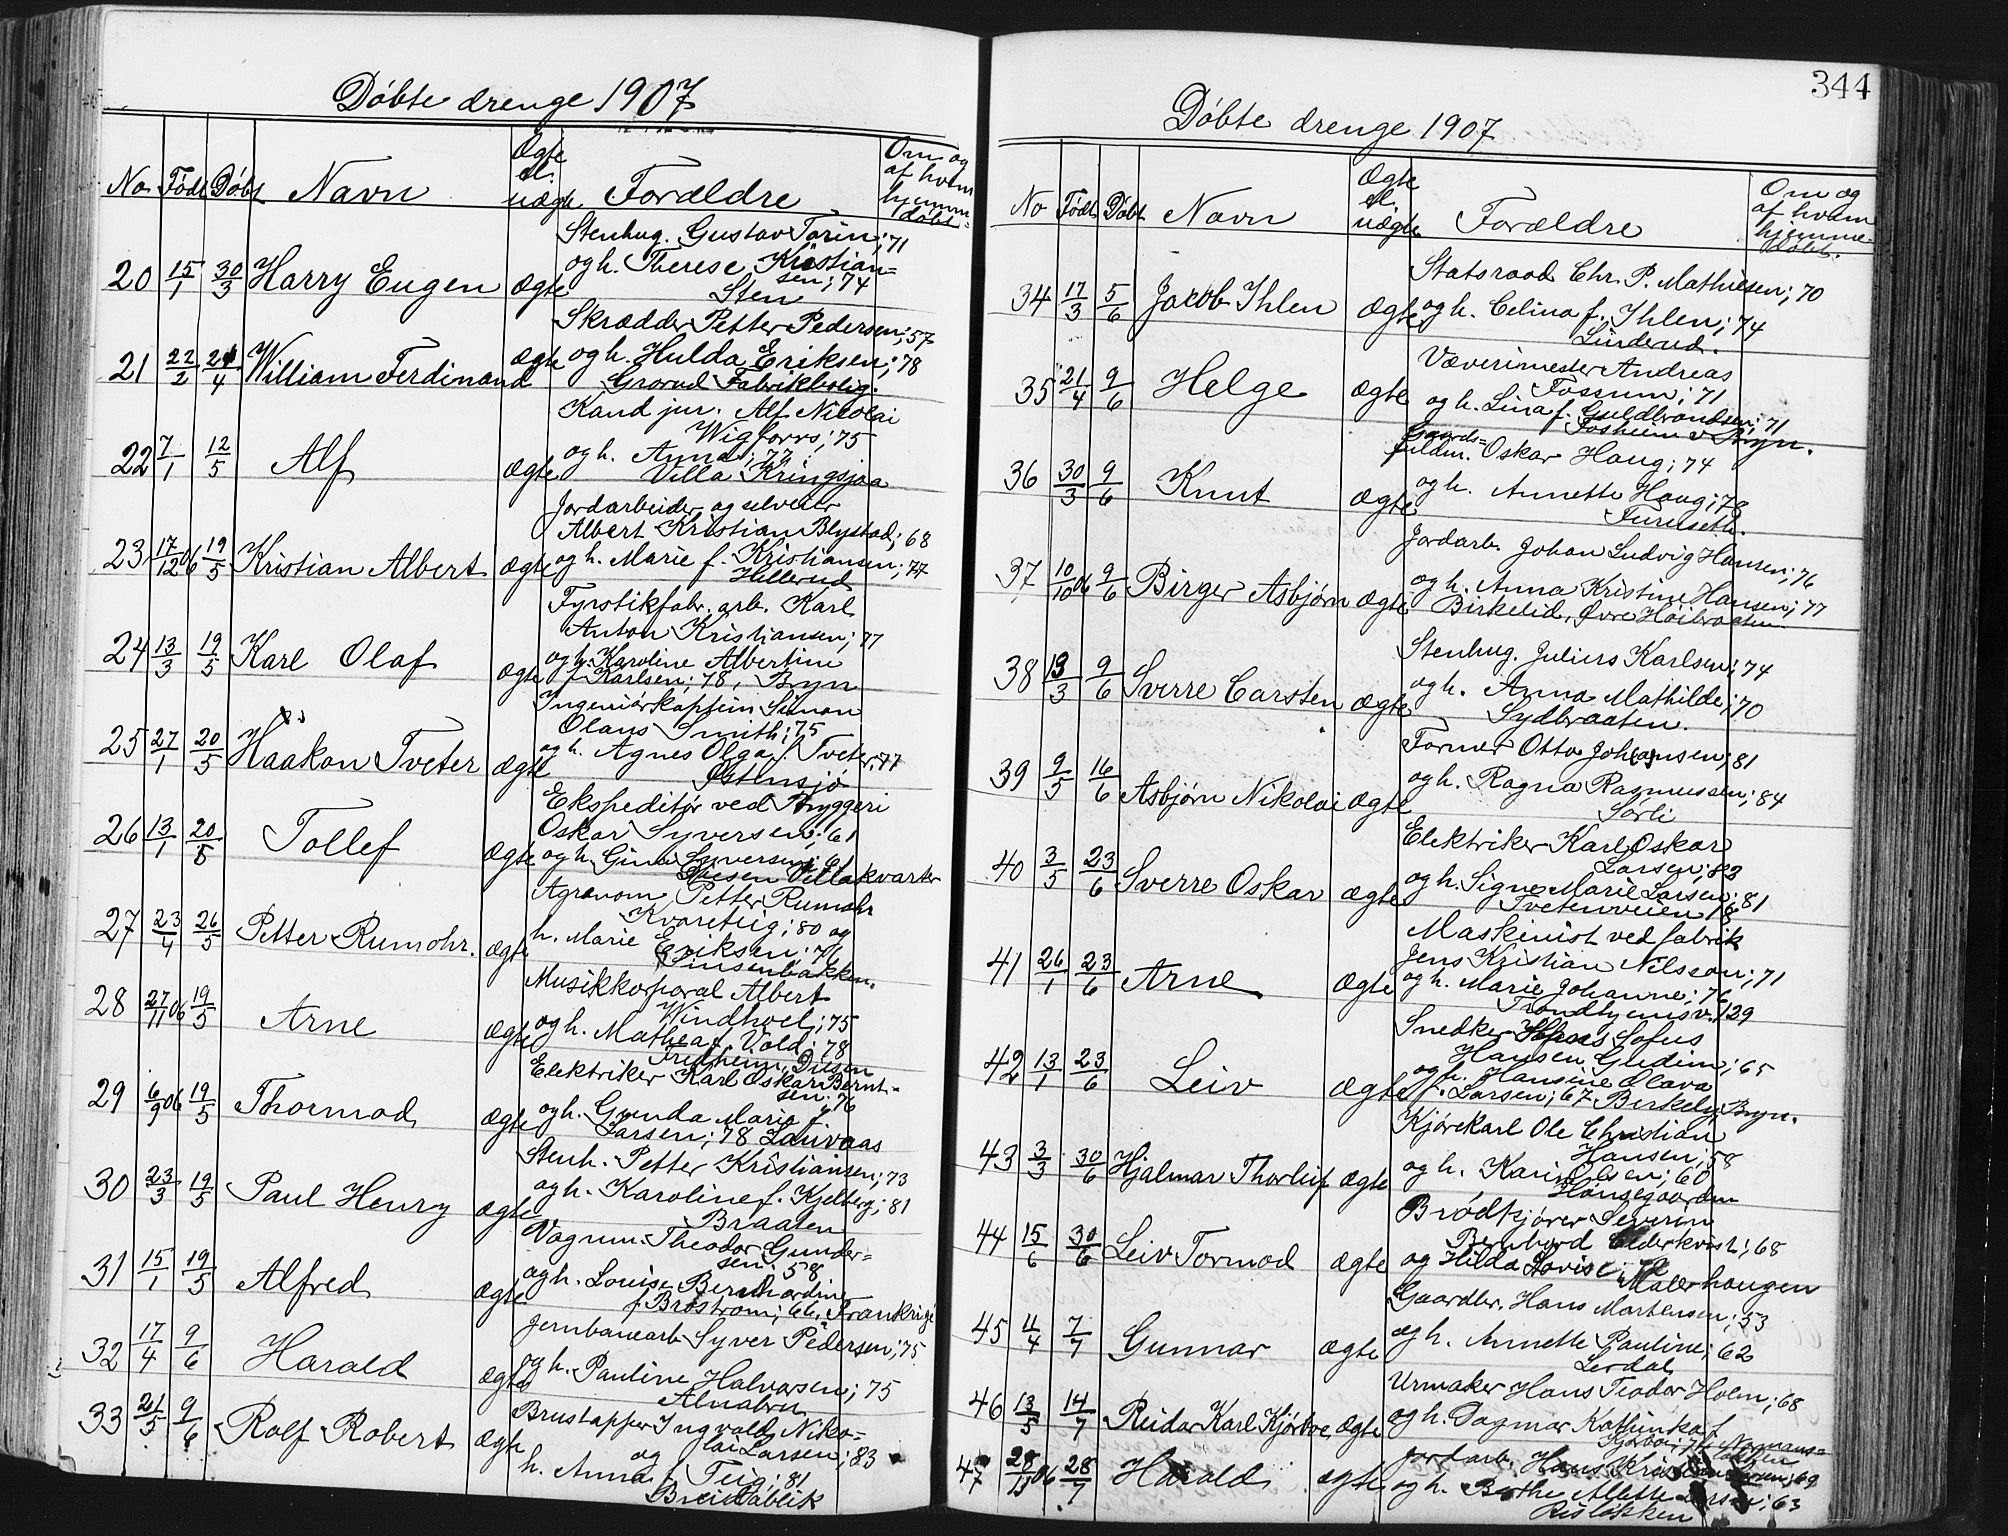 Døbte drenge 1907
No Født Døbt Navn Ægte el. uægte Forældre Om og af hvem hjemmedøbt.
20 15/1 30/3 Harry Eugen ægte
Stenhug. Gustav Torin; 71
og h. Therese Kristian=
sen; 74
Sten
21 22/2 21/4 William Ferdinand ægte
Skrædder Petter Pedersen; 57
og h. Hulda Eriksen; 78
Grorud Fabrikbolig.
22 7/1 12/5 Alf ægte
Kand jur. Alf Nicolai
Wigforss; 75
og h. Anna; 77
Villa Kringsjaa
23 17/12 06 19/5 Kristian Albert ægte
Jordarbeider og selveier
Albert Kristian Blystad; 68
og h. Marie f. Kristiansen; 77
Hellerud
24 13/3 19/5 Karl Olaf ægte
Fyrstikfabr. arb. Karl
Anton Kristiansen; 77
og h. Karoline Albertine
f. Karlsen; 78, Bryn
25 27/1 20/5 Haakon Tveter ægte
Ingeniørkaptein Simon
Olaus Smith; 75
og h. Agnes Olga f. Tveter; 77
Østensjø
26 13/1 20/5 Tollef ægte
Ekspeditør ved Bryggeri
Oskar Syversen; 61
og h. Gina Syversen; 61
Villakvarter
27 23/4 26/5 Petter Rumohr. ægte
Agronom Petter Rumohr
Kvareteig; 80 og
h. Marie Eriksen; 76
28 27/11 06 19/5 Arne ægte
Musikkorporal Albert
Windhoel; 75
og h. Mathea f. Vold; 78
Fredheim, Disen
29 6/9 06 19/5 Thormod ægte
Elektriker Karl Oskar Bernt=
sen; 76
og h. Gunda Marie f.
Larsen; 78
30 23/3 19/5 Paul Henry ægte
Stenh. Petter Kristiansen; 73
og h. Karoline f. Kjelberg; 81
Braaten
31 15/1 19/5 Alfred ægte
Vagnm. Theodor Gunder=
sen. 58
og h. Louise Bernhardine
f. Brostrøm; 66,
32 17/4 9/6 Harald ægte
Jernbanearb. Syver Pedersen; 75
og h. Pauline Halvorsen; 75
Alnabru
33 21/5 9/6 Rolf Robert ægte
Brustapper Ingvald Niko=
lai Larsen; 83
og
h. Anna f. Teig; 81
Breidablik
344
Døbte drenge 1907
No Født Døbt Navn Ægte el. uægte Forældre Om og af hvem hjemme=døbt.
34 17/3 5/6 Jacob Ihlen ægte
Statsraad Chr. P. Mathiesen; 70
og h. Celina f. Ihlen; 74
Linderud.
35 21/4 9/6 Helge ægte
Væverimester Andreas
Fossum; 71
og h. Lina f. Guldbrandsen; 71
Fosheim v Bryn.
36 30/3 9/6 Knut ægte
Gaards=
fuldm. Oskar Haug; 74
og h. Annette Haug; 78
Furuseth.
37 10/10 06 9/6 Birger Asbjørn ægte
Jordarb. Johan Ludvig Hansen; 76
og h. Anna Kristine Hansen; 77
Birkelid, Øvre Høibraaten
38 13/3 9/6 Sverre Carsten ægte
Stenhug. Julius Karlsen; 74
og h. Anna Mathilde; 70
Sydbraaten.
39 9/5 16/6 Asbjørn Nikolai ægte
Former Otto Johansen; 81
og h. Ragna Rasmussen; 84
Sørli
40 3/5 23/6 Sverre Oskar ægte
Elektriker Karl Oskar
Larsen; 83
og h. Signe Marie Larsen; 81
Tvetenveien 18
41 26/1 23/6 Arne ægte
Maskinist ved fabrik
Jens Kristian Nilsson; 71
og h. Marie Johanne; 76
Trondhjemsv. 129
42 13/1 23/6 Leiv ægte
Snedker Hans Sofus
Hansen Gudim; 65
og h. Hansine Olava
f. Larsen; 67 Berkely, Bryn.
43 3/3 30/6 Hjalmar Thorleif ægte
Kjørekarl Ole Christian
Hansen; 58
og h. Karin Olsen; 60
Hønsegaarden
44 15/6 30/6 Leiv Tormod ægte
Brødkjører Severin
Bernhard Cederkvist; 68
og Hilda Lovise
Malerhaugen
45 4/4 7/7 Gunnar ægte
Gaardbr. Hans Martensen; 53
og h. Annette Pauline; 62
Lerdal
46 13/5 14/7 Reidar Karl Kjørboe ægte
Urmaker Hans Teodor Holm; 68
og h. Dagmar Kathinka f.
Kjørboe; 74 Normans=
løkken
47 28/11 06 28/7 Harald ægte
Jordarb. Hans; 69
og h. Berthe Alette; 63
Risløkken